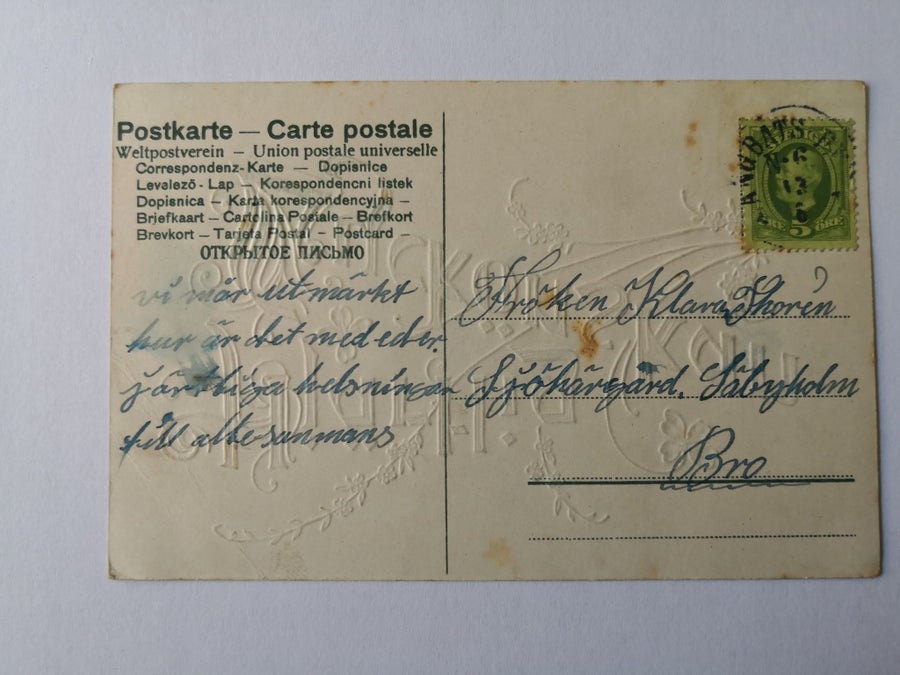 Postkarte — Carte postale
Weltpostverein — Union postale universelle
Correspondenz-Karte — Dopisnice
Levelező-Lap — Korespondencni listek
Dopisnica — Karta korespondencyjna —
Briefkaart — Cartolina Postale — Brefkort
Brevkort — Tarjeta Postal — Postcard —
ОТКРЫТОЕ ПИСЬМО
vi mår utmärkt
hur är det med eder.
järtliga helsningar
till allesammans
Fröken Klara Thorén
Sjökärgård. Säbyholm
Bro
ÅNGBÅTS
5 ÖRE